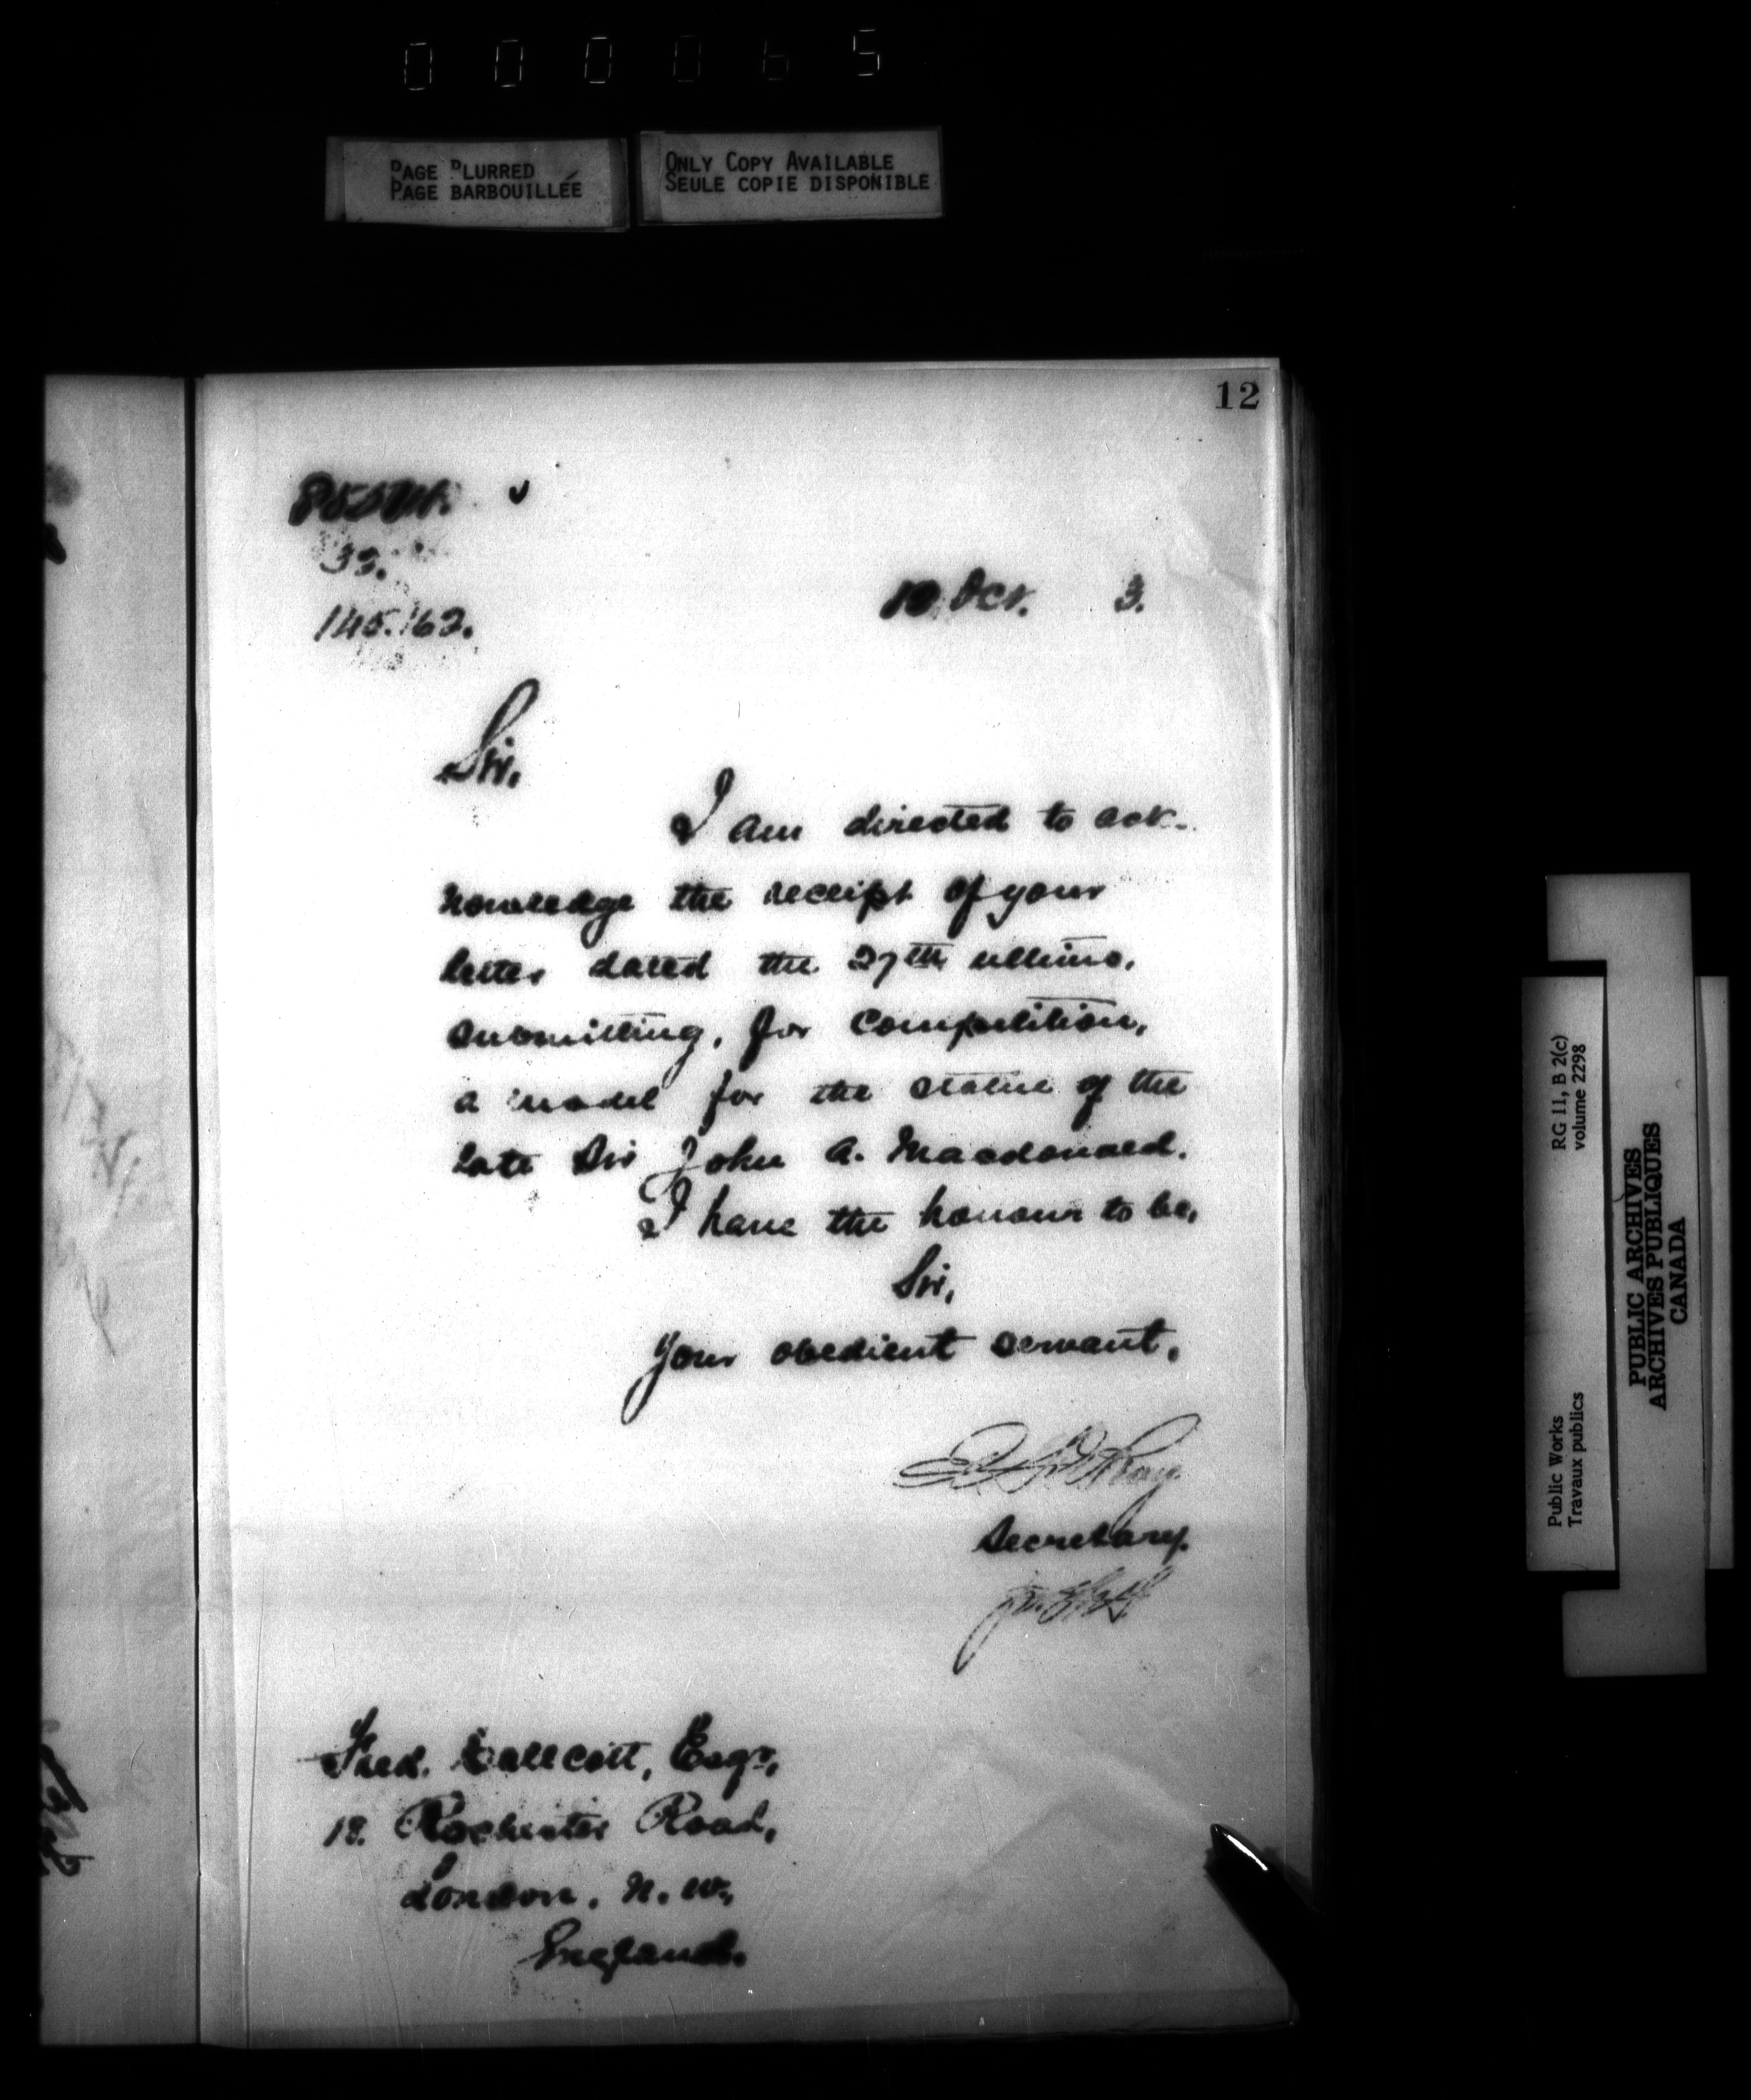 0 0 0 0 6 5
PAGE BLURRED
PAGE BARBOUILLÉE
ONLY COPY AVAILABLE
SEULE COPIE DISPONIBLE
12
33.
145.162.
Oct. 3.
Sir,
I am directed to ack-
nowledge the receipt of your
letter dated the 27th ultimo,
submitting, for competition,
a model for the statue of the
late Sir John A. Macdonald.
I have the honour to be,
Sir,
Your obedient servant,
Secretary.
Fred. Callcott, Esqr,
Rochester Road,
London, N.W.,
England.
Public Works
Travaux publics
RG 11, B 2(c)
volume 2298
PUBLIC ARCHIVES
ARCHIVES PUBLIQUES
CANADA